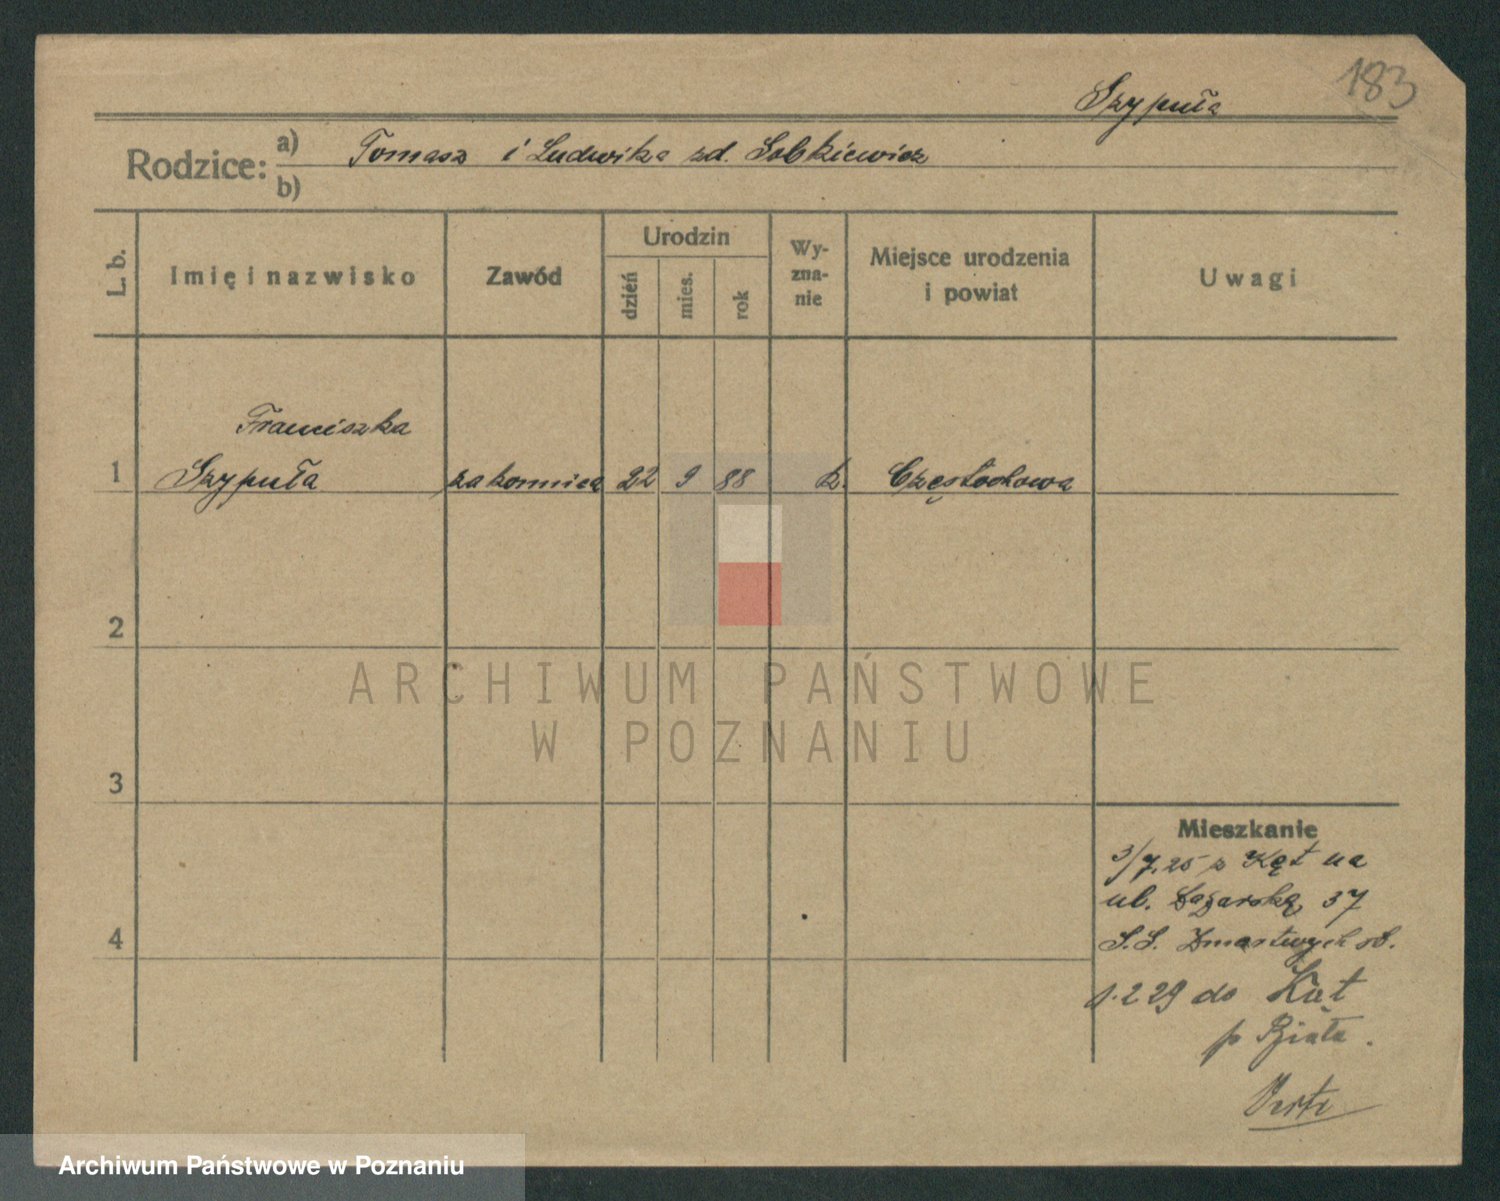 183
Szypuła
Rodzice: a) Tomasz i Ludwika zd. Sobkiewicz
b)
L. b.
Imię i nazwisko
Zawód
Urodzin
dzień
mies.
rok
Wy-
zna-
nie
Miejsce urodzenia
i powiat
Uwagi
Franciszka
1 Szypuła zakonnica 22 9 88 k. Częstochowa
2
3
4
ARCHIWUM PAŃSTWOWE
W POZNANIU
Mieszkanie
3/7.25 z Kęt na
ul. Łazarską 37
S.S. Zmartwychst.
1.2 29 do Kąt
p Biała.
Verte
Archiwum Państwowe w Poznaniu